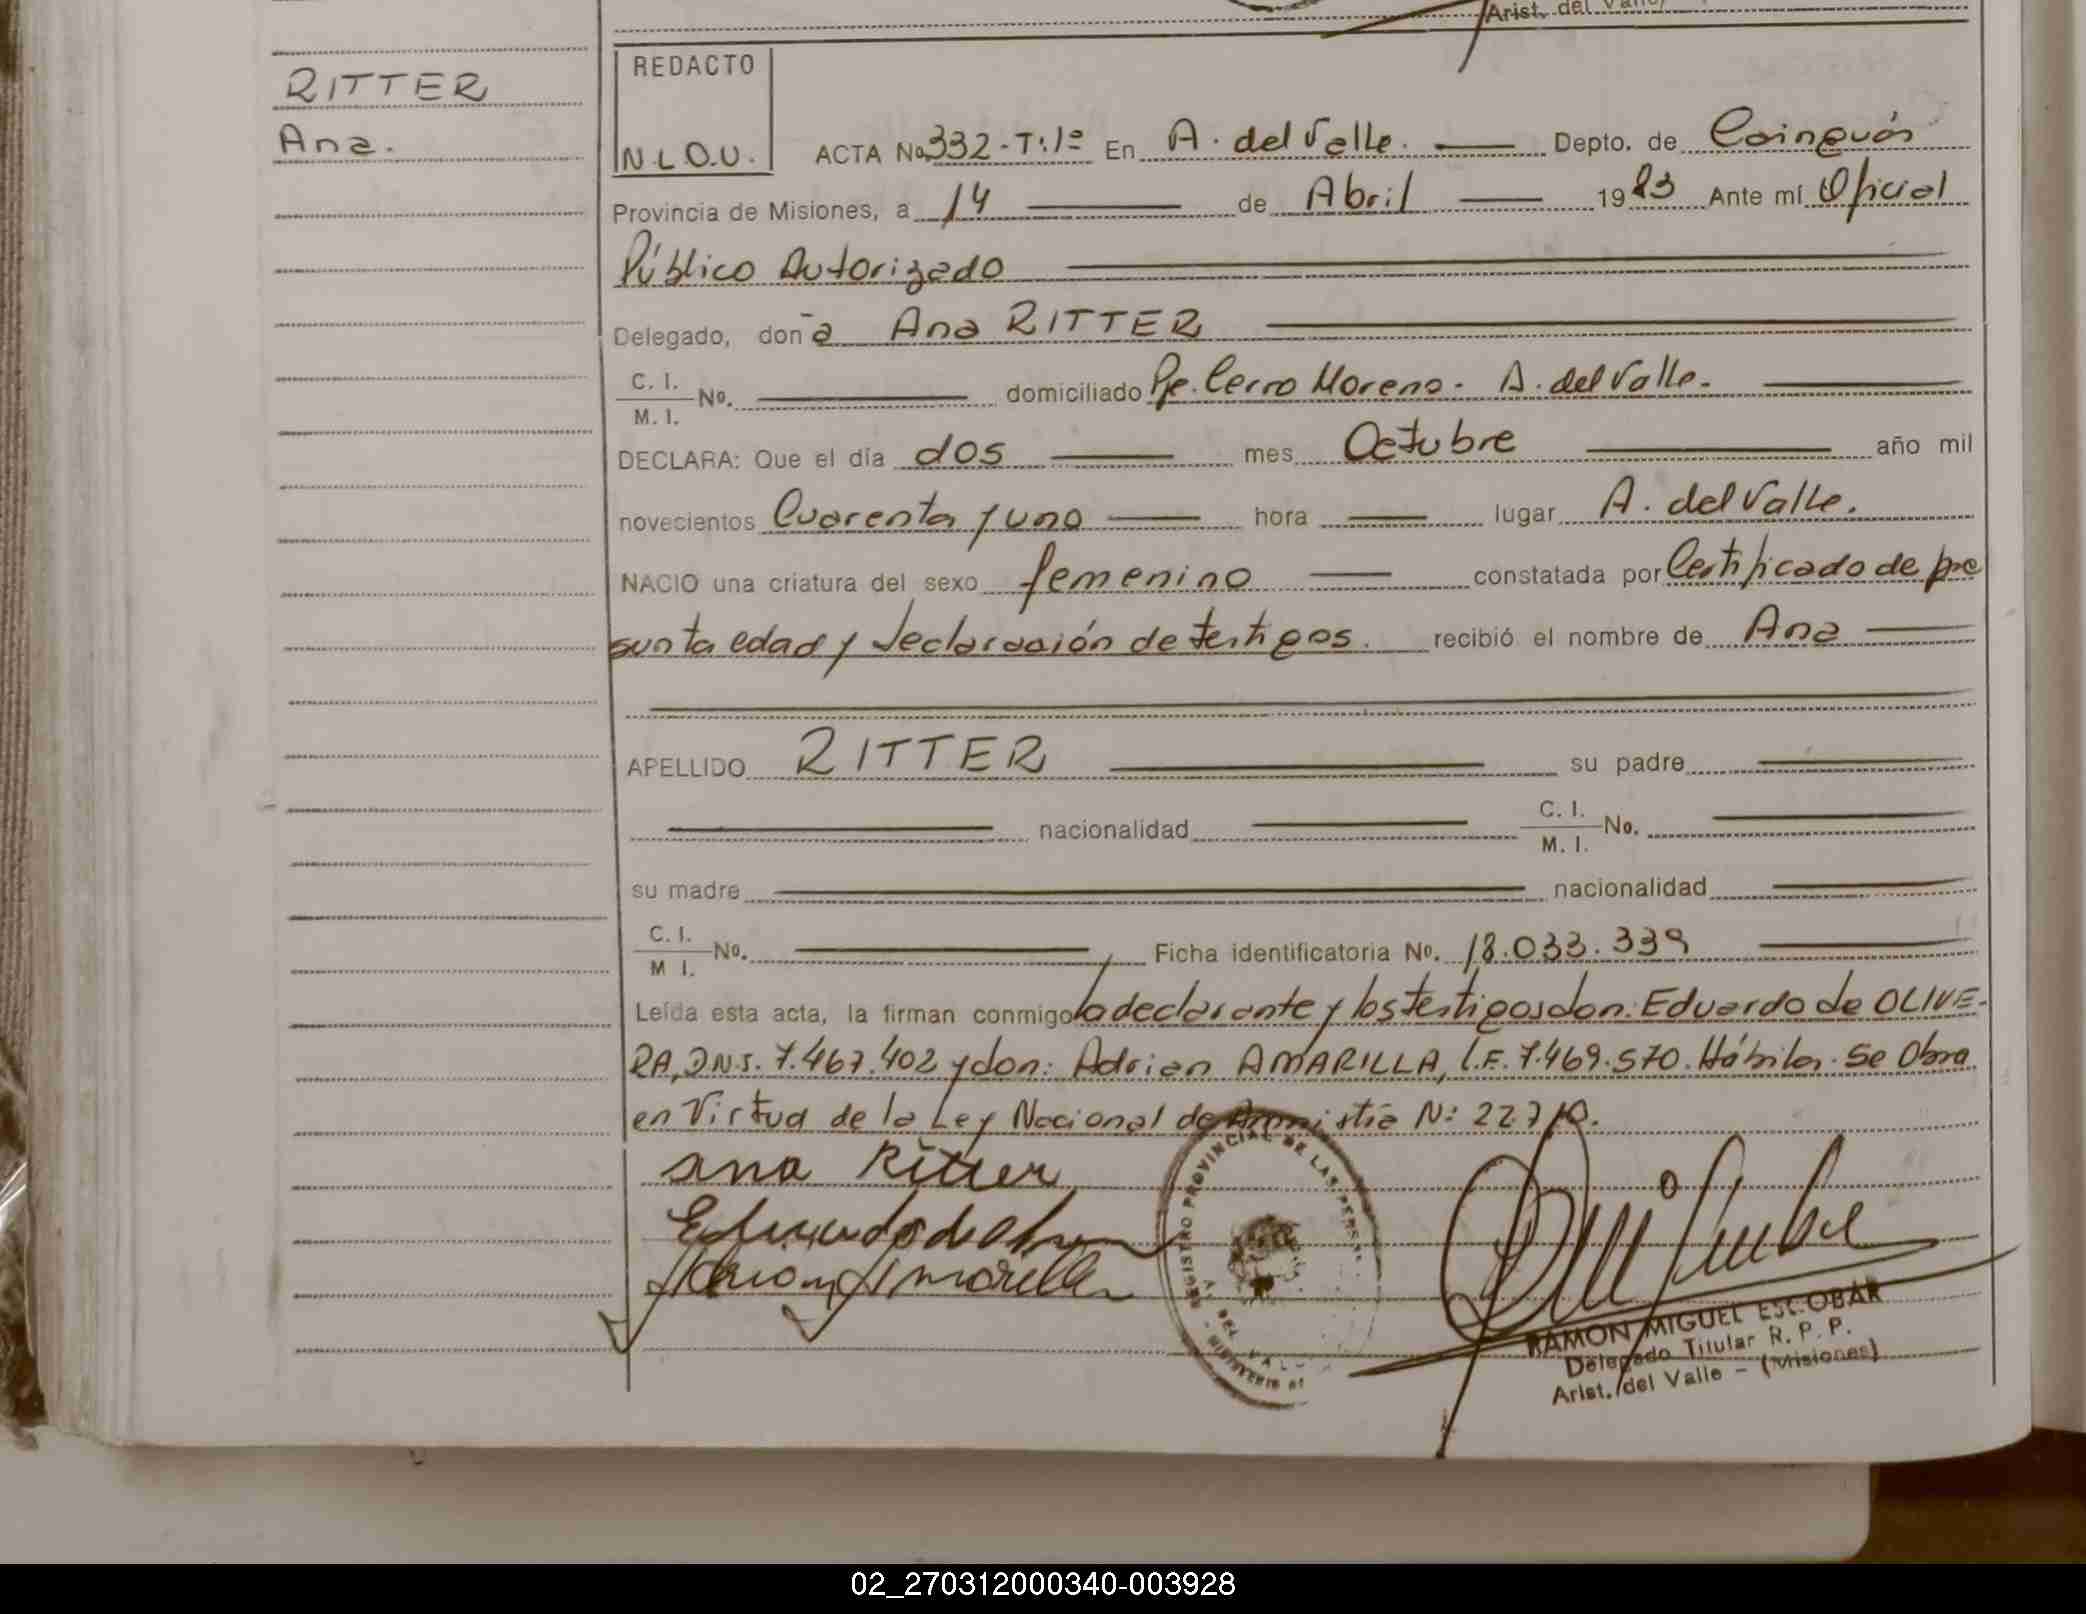 Arist. del Valle
RITTER
Ana.
REDACTO
N.L.O.U.
ACTA No. 332-T:1º En A. del Valle. Depto. de Cainguás
Provincia de Misiones, a 14 de Abril 1983 Ante mí Oficial
Público Autorizado
Delegado, doña Ana RITTER
C. I.
M. I. No. domiciliado Pje. Cerro Moreno - A. del Valle.
DECLARA: Que el día dos mes Octubre año mil
novecientos Cuarenta y uno hora lugar A. del Valle.
NACIO una criatura del sexo femenino constatada por Certificado de pre
sunta edad y declaración de testigos. recibió el nombre de Ana
APELLIDO RITTER su padre
nacionalidad C. I.
M. I. No.
su madre nacionalidad
C. I.
M I. No. Ficha identificatoria No. 18.033.339
Leída esta acta, la firman conmigo la declarante y los testigos don: Eduardo de OLIVE-
RA, D.N.I. 7.467.402 y don: Adrian AMARILLA, L.E. 7.469.570. Hábiles. Se Obra
en Virtud de la Ley Nacional de Amnistía N: 22.710.
Ana Ritter
REGISTRO PROVINCIAL DE LAS PERS
DEL VAL
RAMON MIGUEL ESCOBAR
Delegado Titular R. P. P.
Arist. del Valle - (Misiones)
02_270312000340-003928